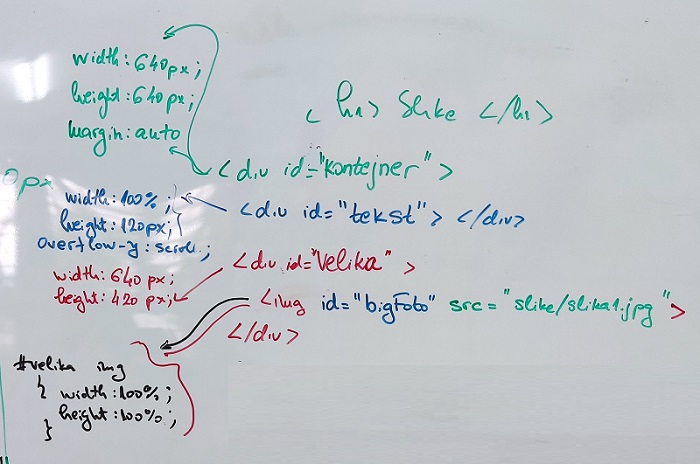 width: 640px;
height: 640px;
margin: auto
< h1> Slike </h1>
<div id="kontejner">
0px
width: 100%;
height: 120px;
overflow-y: scroll;
<div id="tekst"> </div>
width: 640px;
height: 420px;
<div id="Velika">
<img id="bigFoto" src="slike/slika1.jpg">
</div>
#velika img
{ width: 100%;
height: 100%;
}